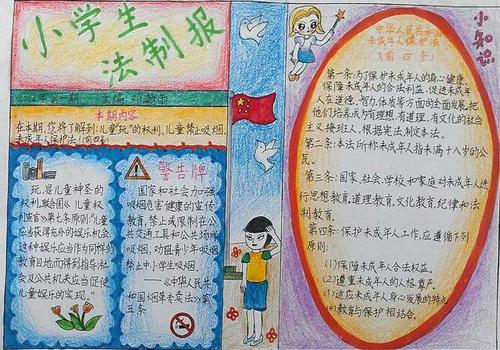 小学生
法制报
本期内容
在本期,您将了解到:儿童"玩"的权利、儿童禁止吸烟、
未成年人保护法(前四条)
玩,是儿童神圣的
权利,联合国《儿童权
利宣言》第七条原则:"儿童
应当获得充分的娱乐机会,
这种娱乐应当作为同样的
教育目地而得到指导;社
会及公共机关应当促使
儿童娱乐的实现。"
警告牌
国家和社会加强
吸烟危害健康的宣传
教育,禁止或限制在公
共交通工具和公共场所
吸烟,劝阻青少年吸烟,
禁止中小学生吸烟。
——《中华人民共
和国烟草专卖法》第
五条
小知识
中华人民共和国
未成年人保护法
(前四条)
第一条:为了保护未成年人的身心健康,
保障未成年人的合法利益,促进未成年
人在道德、智力、体质等方面的全面发展,把
他们培养成为有理想、有道理、有文化的社会
主义接班人,根据宪法,制定本法。
第二条:本法所称未成年人指未满十八岁的公
民。
第三条:国家、社会、学校和家庭对未成年人进
行思想教育,道理教育,文化教育,纪律和法
制教育。
第四条:保护未成年人工作,应遵循下列
原则:
(1)保障未成年人合法权益。
(2)遵重未成年人的人格尊严。
(3)适应未成年人身心发展的特点
(4)教育与保护相结合。